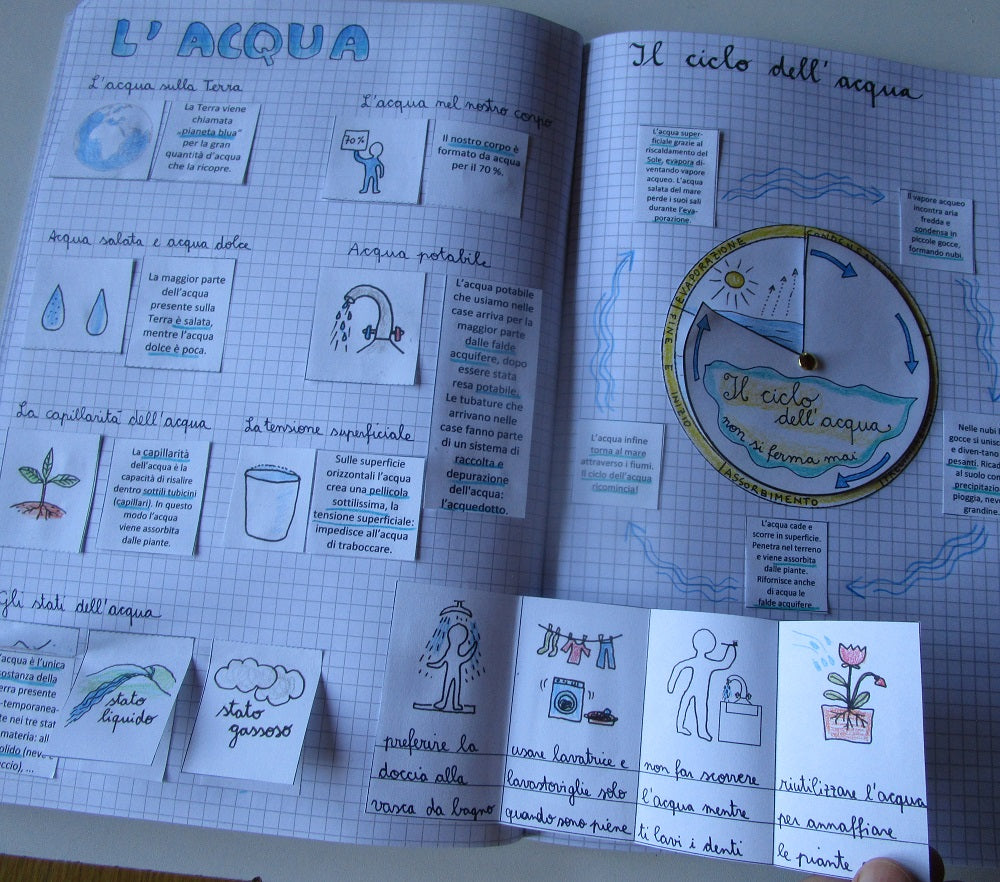 L'ACQUA
L'acqua sulla Terra
La Terra viene
chiamata
„pianeta blua"
per la gran
quantità d'acqua
che la ricopre.
L'acqua nel nostro corpo
70%
Il nostro corpo è
formato da acqua
per il 70 %.
Acqua salata e acqua dolce
La maggior parte
dell'acqua
presente sulla
Terra è salata,
mentre l'acqua
dolce è poca.
Acqua potabile
L'acqua potabile
che usiamo nelle
case arriva per la
maggior parte
dalle falde
acquifere, dopo
essere stata
resa potabile.
Le tubature che
arrivano nelle
case fanno parte
di un sistema di
raccolta e
depurazione
dell'acqua:
l'acquedotto.
La capillarità dell'acqua
La capillarità
dell'acqua è la
capacità di risalire
dentro sottili tubicini
(capillari). In questo
modo l'acqua
viene assorbita
dalle piante.
La tensione superficiale
Sulle superficie
orizzontali l'acqua
crea una pellicola
sottilissima, la
tensione superficiale:
impedisce all'acqua
di traboccare.
Gli stati dell'acqua
acqua è l'unica
ostanza della
erra presente
-temporanea-
te nei tre stat
materia: all
olido (neve
ccio), ...
stato
liquido
stato
gassoso
preferire la
doccia alla
vasca da bagno
usare lavatrice e
lavastoviglie solo
quando sono piene
non far scorrere
l'acqua mentre
ti lavi i denti
riutilizzare l'acqua
per annaffiare
le piante
Il ciclo dell'acqua
L'acqua super-
ficiale grazie al
riscaldamento del
Sole, evapora di-
ventando vapore
acqueo. L'acqua
salata del mare
perde i suoi sali
durante l'eva-
porazione.
Il vapore acqueo
incontra aria
fredda e
condensa in
piccole gocce,
formando nubi.
Nelle nubi l
gocce si unisc
e diven-tano
pesanti. Ricad
al suolo con
precipitazio
pioggia, neve
grandine.
L'acqua cade e
scorre in superficie.
Penetra nel terreno
e viene assorbita
dalle piante.
Rifornisce anche
di acqua le
falde acquifere.
L'acqua infine
torna al mare
attraverso i fiumi.
Il ciclo dell'acqua
ricomincia!
EVAPORAZIONE
ASSORBIMENTO
INIZIO E FINE
Il ciclo
dell'acqua
non si ferma mai